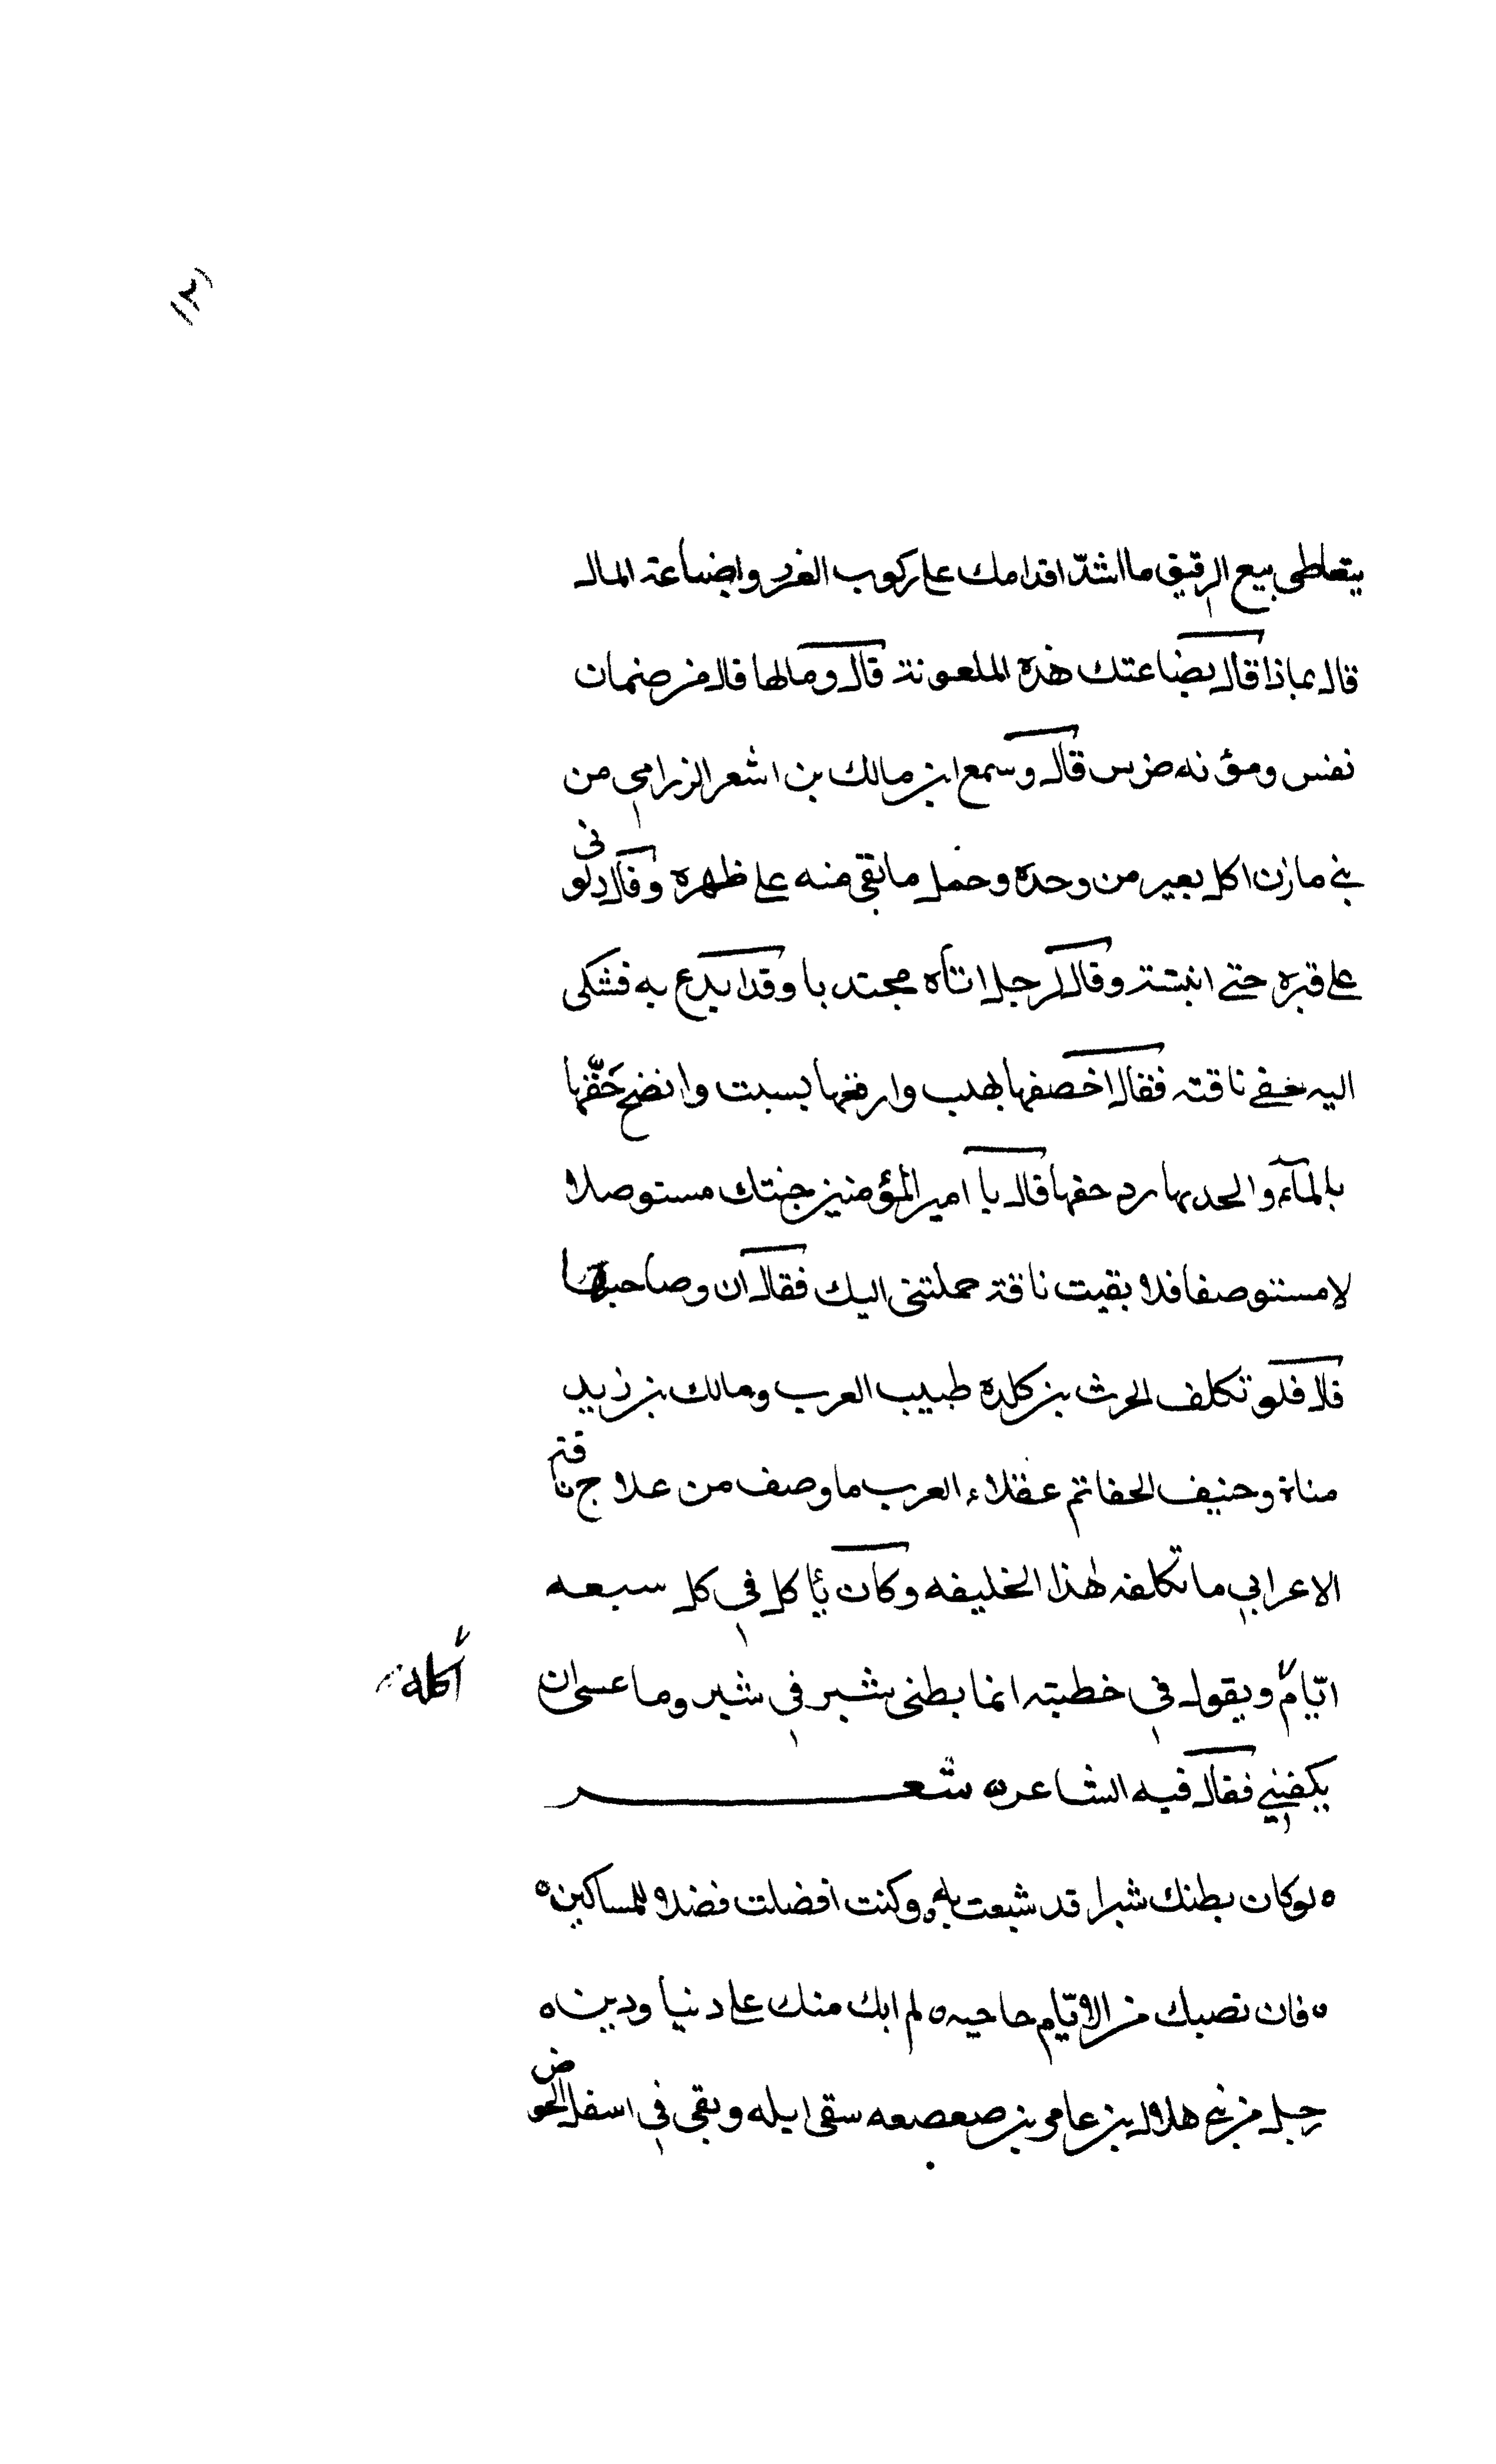 ١٢١
يتعاطى بيع الرقيق ما اشدّ اقدامك على ركوب الغرر واضاعة المال
قال بماذا قال بضاعتك هذه الملعونة قال ومالها قال من ضمان
نفس ومؤنه ضرس قال وسمع ابن مالك بن اشعر الزرامي من
بني مازن اكل بعير من وحده وحمل ما بقي منه على ظهره وقال دلوني
على قبره حتى انبشة وقال لرجل اتاه مجتديا وقد ابدع به فشكى
اليه خفي ناقته فقال اخصفها بهلب وارقعها بسبت وانضح خفّها
بالمآء والحد بها برد خفها قال يا امير المؤمنين جئتك مستوصلا
لا مستوصفا فلا بقيت ناقة حملتني اليك فقال ان وصاحبها
قال فلو تكلف الحرث بن كلده طبيب العرب ومالك بن زيد
مناة وحنيف الحفاتم عقلاء العرب ما وصف من علاج ناقة
الاعرابي ما تكلفه لهذا الخليفه وكان يأكل في كل سبعه
ايّام ويقول في خطبته انما بطني شبر في شبر وما عسى ان
أكله
يكفيني فقال فيه الشاعر ه شعر
ه لو كان بطنك شبرا قد شبعت به ه وكنت افضلت فضلا للمساكين ه
ه فان تصبك من الايّام حاحيه ه لم ابك منك على دنيا ودين ه
رجل من بني هلال بن عامر بن صعصعه سقى ابله وبقي في اسفل الحوض